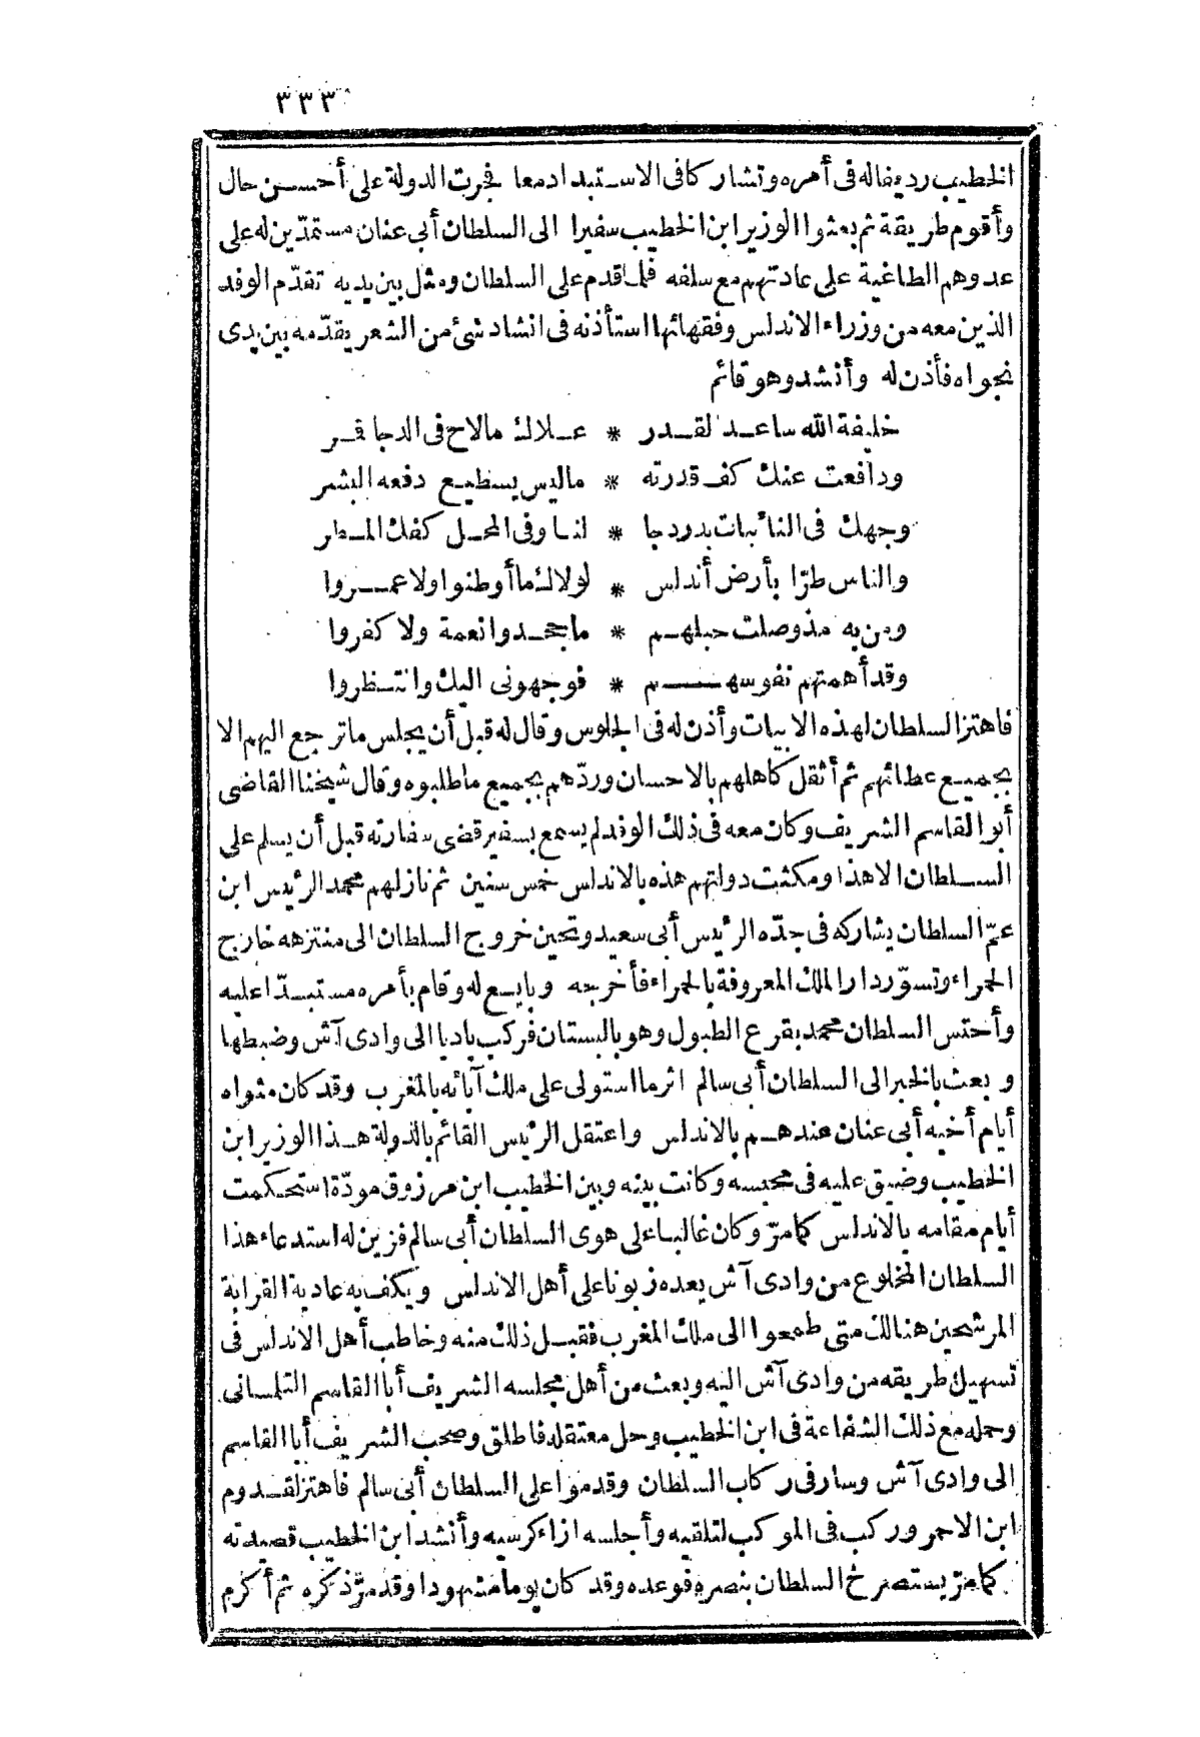 ٣٣٣
الخطيب رديفا له فى أمره وتشاركا فى الاستبداد معا فجرت الدولة على أحسن حال
وأقوم طريقة ثم بعثوا الوزير ابن الخطيب سفيرا الى السلطان أبى عنان مستمدّين له على
عدوهم الطاغية على عادتهم مع سلفه فلما قدم على السلطان ومثل بين يديه تقدّم الوفد
الذين معه من وزراء الاندلس وفقهائها استأذنه فى انشاد شئ من الشعر يقدّمه بين يدى
نجواه فأذن له وأنشد وهو قائم
خليفة الله ساعد القدر * علاك مالاح فى الدجا قمر
ودافعت عنك كف قدرته * ماليس يسطيع دفعه البشر
وجهك فى النائبات بدر دجا * لنا وفى المحل كفك المطر
والناس طرّا بأرض أندلس * لولاك ما أوطنوا ولا عمروا
ومن به مذ وصلت حبلهم * ما جحدوا نعمة ولا كفروا
وقد أهمتهم نفوسهم * فوجهونى اليك وانتظروا
فاهتز السلطان لهذه الابيات وأذن له فى الجلوس وقال له قبل أن يجلس ما ترجع اليهم الا
بجميع عطائهم ثم أثقل كاهلهم بالاحسان وردّهم بجميع ما طلبوه وقال شيخنا القاضى
أبو القاسم الشريف وكان معه فى ذلك الوفد لم يسمع بسفير قضى سفارته قبل أن يسلم على
السلطان الا هذا ومكثت دولتهم هذه بالاندلس خمس سنين ثم نازلهم محمد الرئيس ابن
عمّ السلطان يشاركه فى جدّه الرئيس أبى سعيد وتحين خروج السلطان الى منتزهه خارج
الحمراء وتسوّر دار الملك المعروفة بالحمراء فأخرجه وبايع له وقام بأمره مستبدّا عليه
وأحتس السلطان محمد بقرع الطبول وهو بالبستان فركب باديا الى وادى آش وضبطها
وبعث بالخبر الى السلطان أبى سالم اثر ما استولى على ملك آبائه بالمغرب وقد كان مثواه
أيام أخيه أبى عنان عندهم بالاندلس واعتقل الرئيس القائم بالدولة هذا الوزير ابن
الخطيب وضيق عليه فى محبسه وكانت بينه وبين الخطيب ابن مرزوق مودّة استحكمت
أيام مقامه بالاندلس كما مرّ وكان غالبا على هوى السلطان أبى سالم فزين له استدعاء هذا
السلطان المخلوع من وادى آش يعده زبونا على أهل الاندلس ويكف به عادية القرابة
المرشحين هنالك متى طمعوا الى ملك المغرب فقبل ذلك منه وخاطب أهل الاندلس فى
تسهيل طريقه من وادى آش اليه وبعث من أهل مجلسه الشريف أبا القاسم التلمسانى
وحمله مع ذلك الشفاعة فى ابن الخطيب وحل معتقله فاطلق وصحب الشريف أبا القاسم
الى وادى آش وسار فى ركاب السلطان وقدموا على السلطان أبى سالم فاهتز لقدوم
ابن الاحمر وركب فى الموكب لتلقيه وأجلسه ازاء كرسيه وأنشد ابن الخطيب قصيدته
كما مرّ يستصرخ السلطان بنصره فوعده وقد كان يوما مشهودا وقد مرّ ذكره ثم أكرم